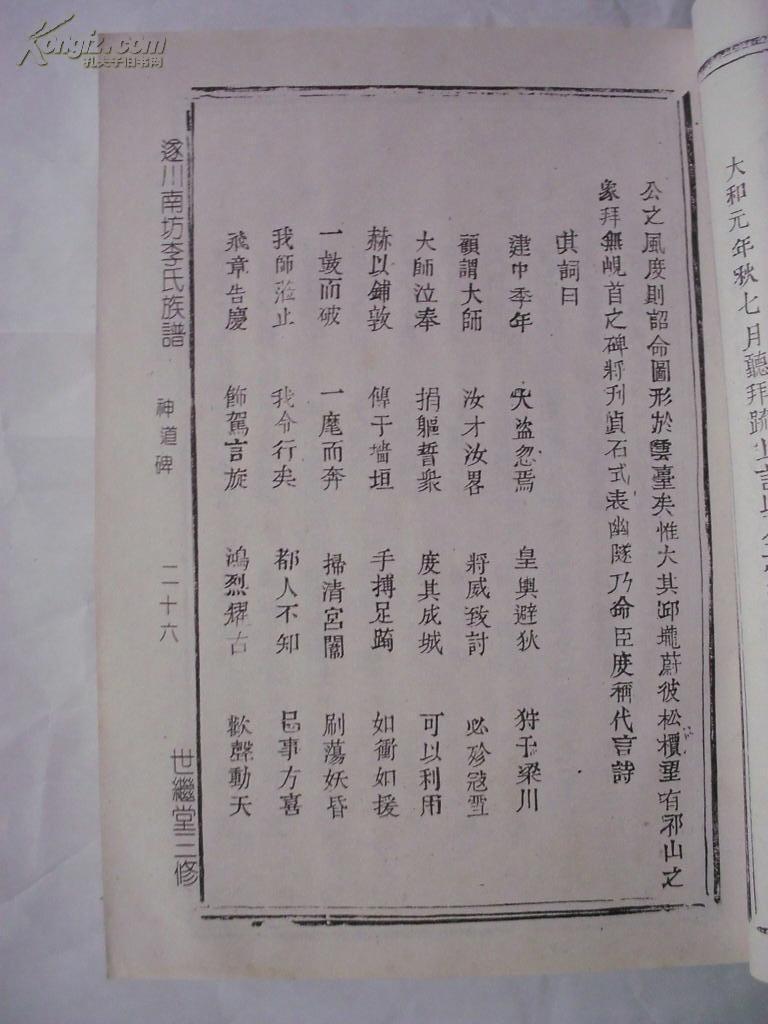 Kongfz.com
孔夫子旧书网
大和元年秋七月聽拜疏
公之風度則詔命圖形於雲臺矣惟大其邱壠蔚彼松檟里有祁山之
象拜無峴首之碑將刋貞石式表幽隧乃命臣度稱代言詩
其詞曰
建中季年 大盗忽焉 皇輿避狄 狩于梁川
顧謂大師 汝才汝畧 將威致討 必殄寇
大師泣奉 捐軀誓衆 度其成城 可以利用
赫以鋪敦 傅于墻垣 手搏足踦 如衝如援
一鼓而破 一麾而奔 掃清宮闕 刷蕩妖昏
我師蒞止 我令行矣 都人不知 事方喜
飛章告慶 飾駕言旋 鴻烈耀古 歡聲動天
遂川南坊李氏族譜 神道碑 二十六 世繼堂三修